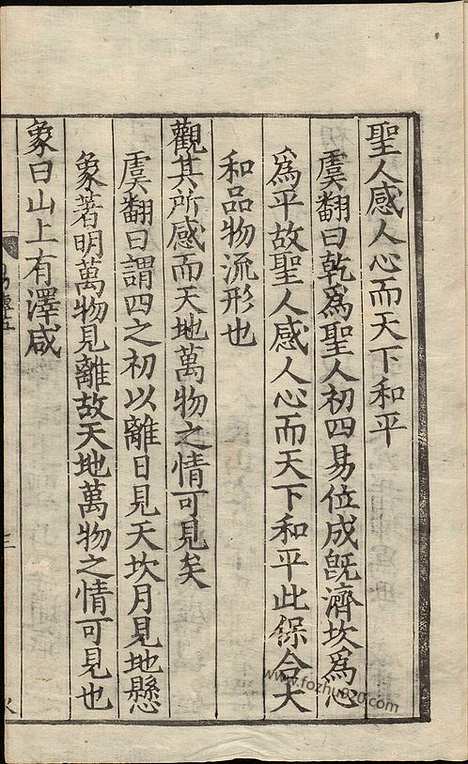 聖人感人心而天下和平
虞翻曰乾為聖人初四易位成旣濟坎為心
為平故聖人感人心而天下和平此保合太
和品物流形也
觀其所感而天地萬物之情可見矣
虞翻曰謂四之初以離日見天坎月見地懸
象著明萬物見離故天地萬物之情可見也
象曰山上有澤咸
三
www.fozhu920.com